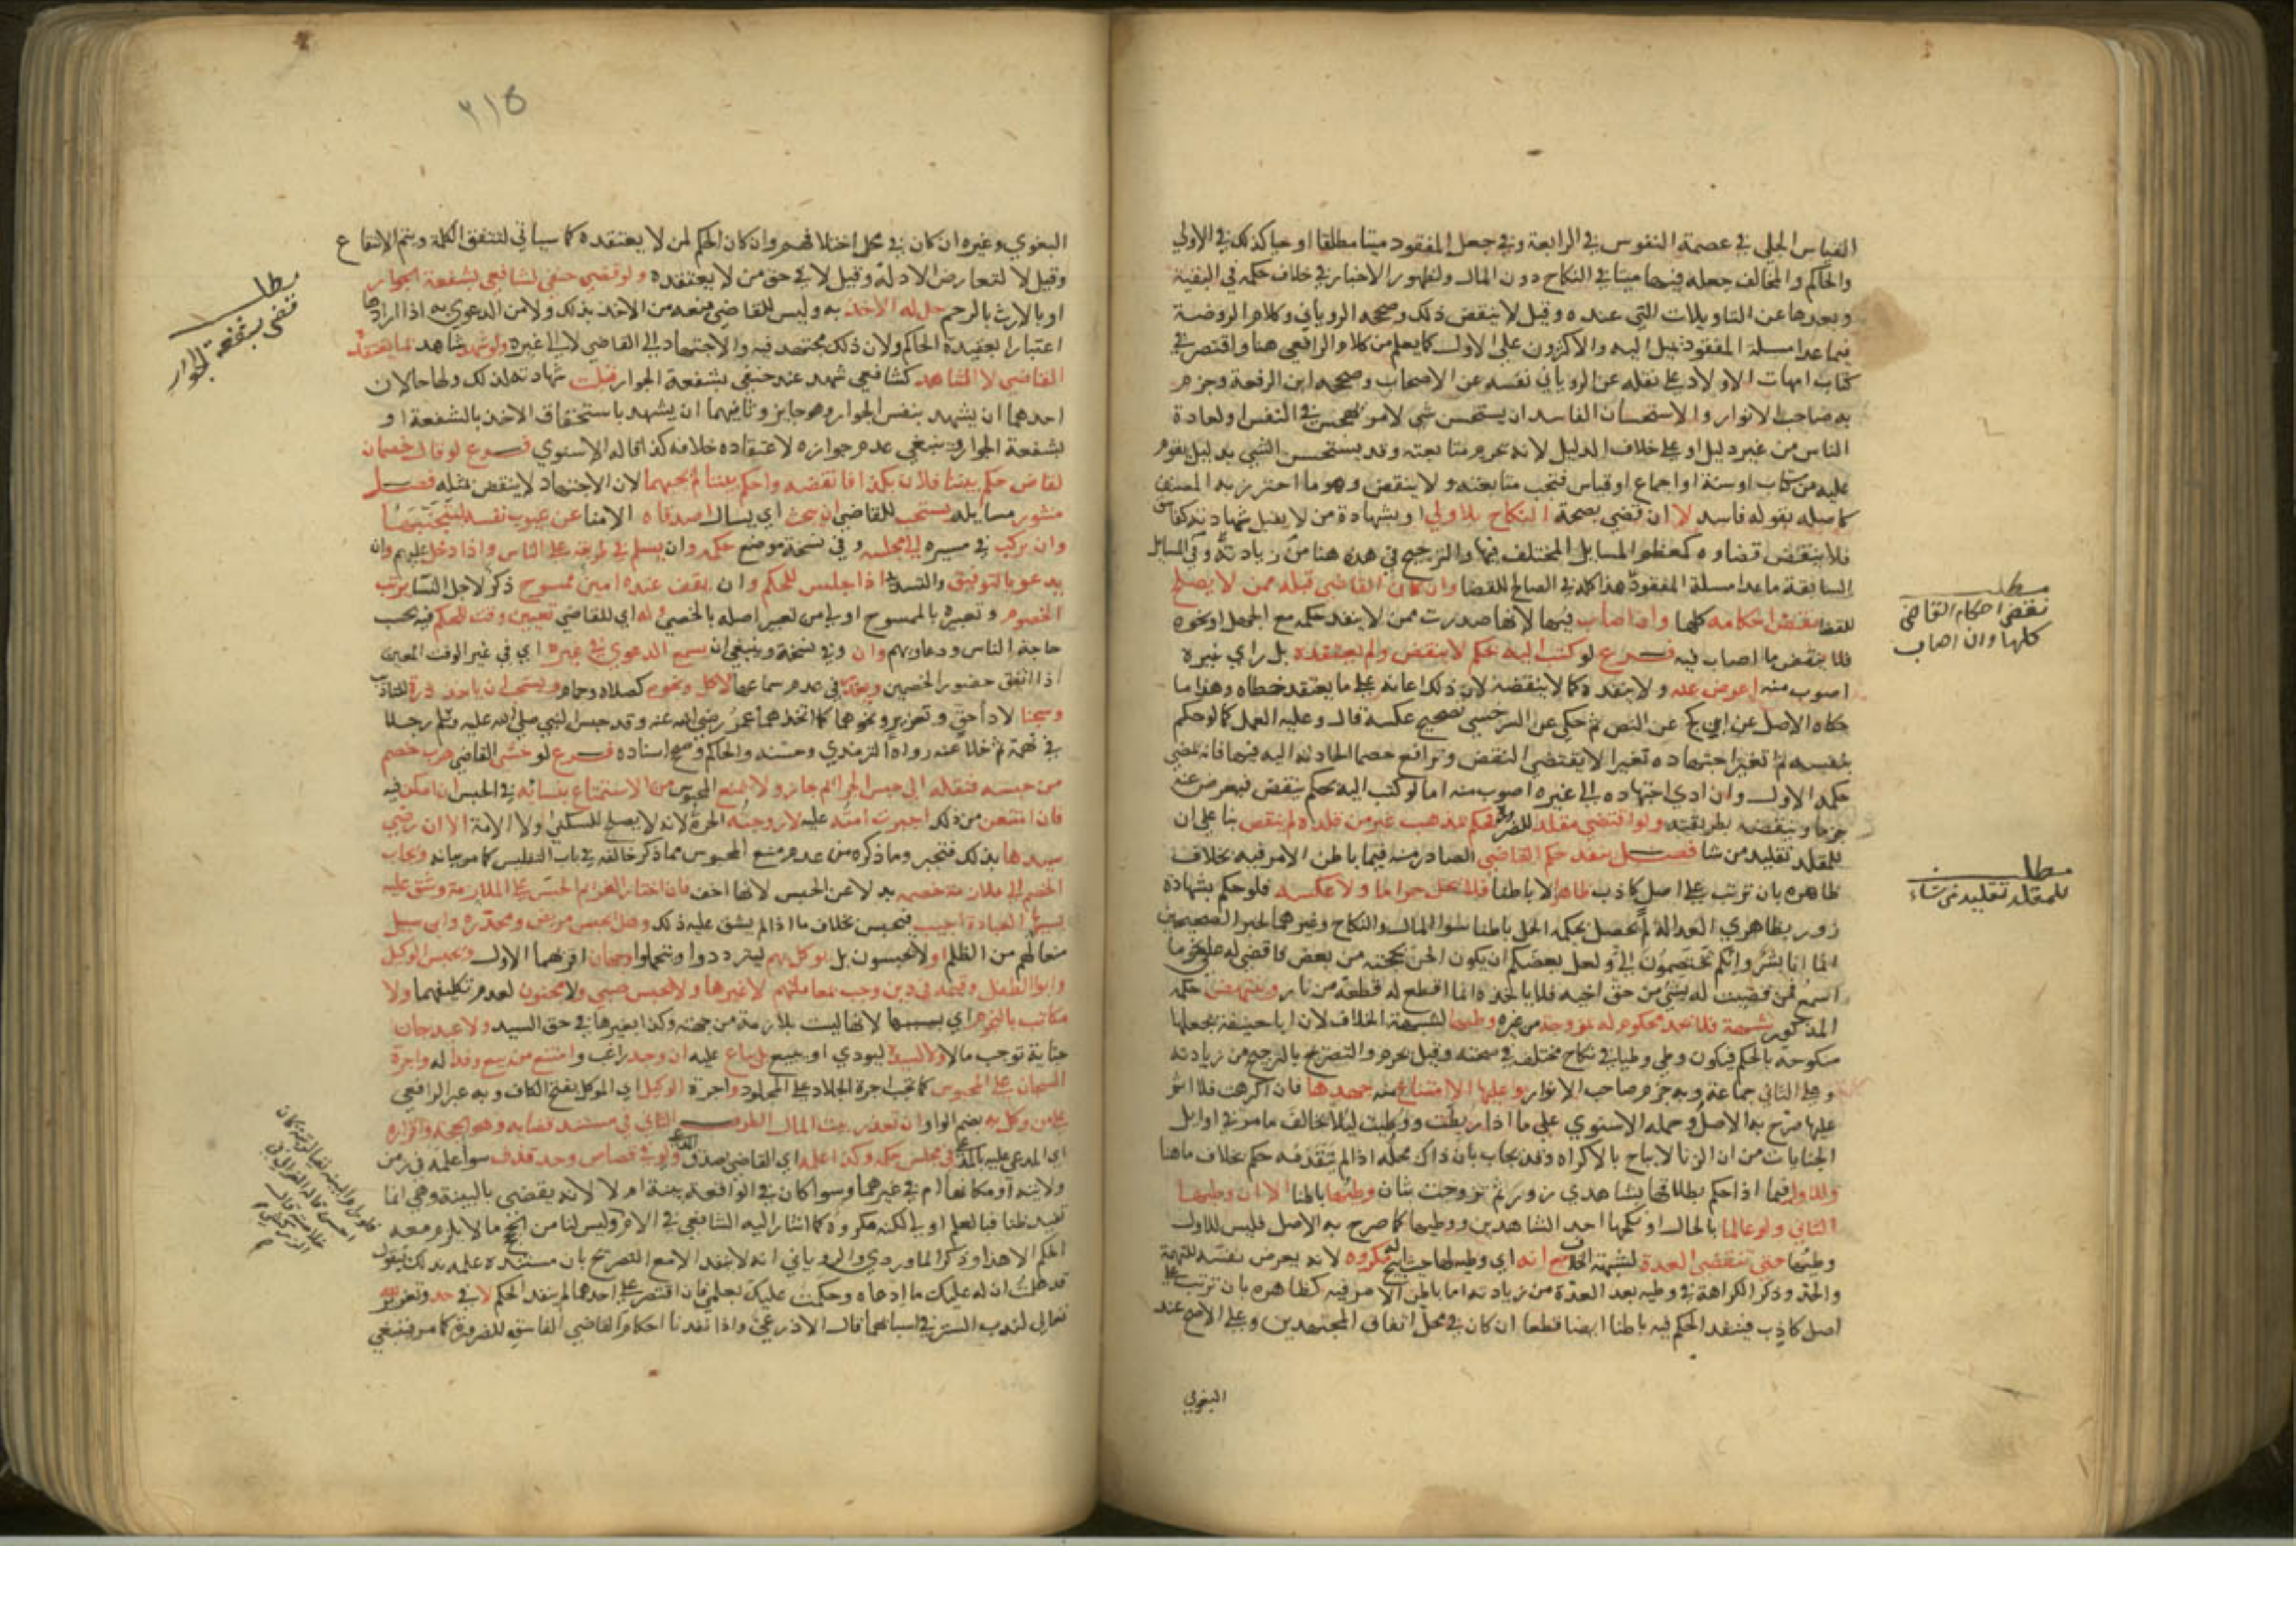 القياس الجلي في عصمة النفوس في الرابعة وفي جعل المفقود ميتا مطلقا او حيا كذلك في الاولي
والحاكم والمخالف جعله فيهما ميتا في النكاح دون المال ولظهور الاخبار في خلاف حكمه في البقية
وبعدها عن التاويلات التي عنده وقيل لا ينقض ذلك وصححه الروياني وكلام الروضة
فيما عدا مسلة المفقود يميل اليه والاكثرون على الاول كما يعلم من كلام الرافعي هنا واقتصر في
كتاب امهات الاولاد على نقله عن الروياني نفسه عن الاصحاب وصححه ابن الرفعة وجزم
به صاحب الانوار والاستحسان الفاسد ان يستحسن شي لامر يهجس في النفس او لعادة
الناس من غير دليل او على خلاف الدليل لانه تحرم متابعته وقد يستحسن الشي بدليل يقوم
عليه من كتاب او سنة او اجماع او قياس فتجب متابعته ولا ينقض وهو ما احترز به المصنف
كاصله بقوله فاسد لا ان قضى بصحة النكاح بلا ولي او بشهادة من لا يقبل شهادته كفاسق
فلا ينقض قضاوه كمعظم المسايل المختلف فيها والترجيح في هذه هنا من زيادته وفي المسايل
السابقة ماعدا مسلة المفقود هذا كله في الصالح للقضا وان كان القاضي قبله ممن لا يصلح
للقضا نقض احكامه كلها وان اصاب فيها لانها صدرت ممن لا ينفذ حكمه مع الجهل او نحوه
فلا ينقض ما اصاب فيه فرع لو كتب اليه بحكم لا ينقض ولم يعتقده بل راي غيره
اصوب منه اعرض عنه ولا ينفذه كما لا ينقضه لان ذلك اعانة على ما يعتقد خطاه وهذا ما
حكاه الاصل عن ابن كج عن النص ثم حكي عن السرخسي تصحيح عكسه قال وعليه العمل كما لو حكم
بنفسه ثم تغير اجتهاده تغيرا لا يقتضي النقض وترافع خصما الحادثة اليه فيها فانه يمضي
حكمه الاول وان ادي اجتهاده الى غيره اصوب منه اما لو كتب اليه بحكم ينقض فيعرض عنه
جزما وينقضه بطريقته ولو اقتضى مقلد للضرورة فحكم بمذهب غير من قلده لم ينقض بنا على ان
للمقلد تقليد من شا فصل ينفذ حكم القاضي الصادر منه فيما باطن الامر فيه بخلاف
ظاهره بان ترتب على اصل كاذب ظاهرا لا باطنا فلا يحل حراما ولا عكسه فلو حكم بشهادة
زور بظاهري العدالة لم يحصل بحكمه الحل باطنا سوا المال والنكاح وغيرهما لخبر الصحيحين
انما انا بشر وانكم تختصمون الي ولعل بعضكم ان يكون الحن بحجته من بعض فاقضي له على نحو ما
اسمع فمن قضيت له بشي من حق اخيه فلا ياخذه انما اقطع له قطعة من نار
المذكور شبهة فلا يحد محكوم له بزوجة من غيره وطيها لشبهة الخلاف لان ابا حنيفة يجعلها
منكوحة بالحكم فيكون وطي وطيا في نكاح مختلف في صحته وقيل يحرم والتصريح بالترجيح من زيادته
وعلى الثاني جماعة وبه جزم صاحب الانوار وعليها الامتناع منه جهدها فان اكرهت فلا اثم
عليها صرح به الاصل وحمله الاسنوي على ما اذا ربطت ووطيت ليلا يخالف ما مر في اوايل
الجنايات من ان الزنا لا يباح بالاكراه وقد يجاب بان ذاك محله اذا لم يتقدمه حكم بخلاف ما هنا
وللاول فيما اذا حكم بطلاقها بشاهدي زور ثم تزوجت بثان وطيها باطنا الا ان وطيها
الثاني ولو عالما بالحال او نكحها احد الشاهدين ووطيها كما صرح به الاصل فليس للاول
وطيها حتى تنقضي العدة لشبهة الخلاف مع انه اي وطيها حيث ابيح مكروه لانه يعرض نفسه للتهمة
والحد وذكر الكراهة في وطيه بعد العدة من زيادته اما باطن الامر فيه كظاهره بان ترتب على
اصل كاذب فينفذ الحكم فيه باطنا ايضا قطعا ان كان في محل اتفاق المجتهدين وعلى الاصح عند
البغوي
مطلب
نقض احكام القاضي
كلها وان اصاب
مطلب
للمقلد تقليد من شاء
٢١٥
البغوي وغيره ان كان في محل اختلافهم وان كان الحكم لمن لا يعتقده كما سياتي لتتفق الكلمة ويتم الانتفاع
وقيل لا لتعارض الادلة وقيل لا في حق من لا يعتقده ولو قضي حنفي لشافعي بشفعة الجوار
او بالارث بالرحم حل له الاخذ به وليس للقاضي منعه من الاخذ بذلك ولا من الدعوي به اذا ارادها
اعتبارا بعقيدة الحاكم ولان ذلك مجتهد فيه والاجتهاد الى القاضي لا الى غيره ولو شهد شاهد بما يعتقده
القاضي لا الشاهد كشافعي شهد عند حنفي بشفعة الجوار قبلت شهادته لذلك ولها حالان
احدهما ان يشهد بنفس الجوار وهو جايز وثانيهما ان يشهد باستحقاق الاخذ بالشفعة او
بشفعة الجوار فينبغي عدم جوازه لاعتقاده خلافه كذا قاله الاسنوي فرع لو قال خصمان
لقاض حكم بيننا فلان بكذا فانقضه واحكم بيننا لم يجبهما لان الاجتهاد لا ينقض بمثله فصل
منثور مسايله يستحب للقاضي ان يبحث اي يسال اصدقاه الامنا عن عيوب نفسه ليتجنبها
وان يركب في مسيره الى مجلسه وفي نسخة موضع حكمه وان يسلم في طريقه على الناس واذا دخل عليهم وان
يدعو بالتوفيق والتسديد اذا جلس للحكم وان يقف عنده امين ممسوح ذكر لاجل النسا يرتب
الخصوم وتعبيره بالممسوح اولى من تعبير اصله بالخصي وله اي للقاضي تعيين وقت للحكم فيه بحسب
حاجة الناس ودعاويهم وان وفي نسخة وينبغي ان يسمع الدعوي في غيره اي في غير الوقت المعين
اذا اتفق حضور الخصمين ويعذر في عدم سماعها لاكل ونحوه كصلاة وحمام ويستحب ان ياخذ درة للتاديب
وسجنا لاداحق وتعزير ونحوهما كما اتخذهما عمر رضي الله عنه وقد حبس النبي صلى الله عليه وسلم رجلا
في تهمة ثم خلا عنه رواه الترمذي وحسنه والحاكم وصحح اسناده فرع لو خشى القاضي هرب خصم
من حبسه فنقله الى حبس الجرايم جاز ولا يمنع المحبوس من الاستمتاع بنسائه في الحبس ان امكن فيه
فان امتنعن من ذلك اجبرت امته عليه لا زوجته الحرة لانه لا يصلح للسكنى ولا الامة الا ان رضي
سيدها بذلك فتجبر وما ذكره من عدم منع المحبوس مما ذكر خالفه في باب التفليس كما مر بيانه ويجاب
الخصم الى ملازمة خصمه بدلا عن الحبس لانها اخف فان اختار الغريم الحبس على الملازمة وشق عليه
بسببها العبادة اجيب فيحبس بخلاف ما اذا لم يشق عليه ذلك وهل يحبس مريض ومخدرة وابن سبيل
منعا لهم من الظلم او لا يحبسون بل يوكل بهم ليترددوا ويتمحلوا وجهان اقربهما الاول ويحبس الوكيل
وابو الطفل وقيمه في دين وجب بمعاملتهم لا غيرها ولا يحبس صبي ولا مجنون لعدم تكليفهما ولا
مكاتب بالنجوم اي بسببها لانها ليست بلازمة من جهته وكذا بغيرها في حق السيد ولا عبد جان
جناية توجب مالا ولا سيده ليودي او يبيع بل يباع عليه ان وجد راغب وامتنع من بيع وفدا له واجرة
السجان على المحبوس كما تجب اجرة الجلاد على المجلود واجرة الوكيل اي الموكل بفتح الكاف وبه عبر الرافعي
على من وكل به بضم الواو ان تعذر بيت المال الطرف الثاني في مستند قضايه وهو الحجة واقراره
اي المدعى عليه بالمدعى في مجلس حكمه وكذا علمه اي القاضي بصدق المدعي ولو في قصاص وحد قذف سوا علمه في زمن
ولايته او مكانها ام في غيرهما وسوا كان في الواقعة بينة ام لا لانه يقضي بالبينة وهي انما
تفيد ظنا فبالعلم اولى لكنه مكروه كما اشار اليه الشافعي في الام وليس لنا من الحجج ما لا يلزم معه
الحكم الا هذا وذكر الماوردي والروياني انه لا ينفذ الا مع التصريح بان مستنده علمه بذلك فيقول
قد علمت ان له عليك ما ادعاه وحكمت عليك بعلمي فان اقتصر على احدهما لم ينفذ الحكم لا في حد وتعزير لله
تعالى لندب الستر في اسبابهما قال الاذرعي واذا نفذنا احكام القاضي الفاسق للضرورة كما مر فينبغي
مطلب
قضى بشفعة الجوار